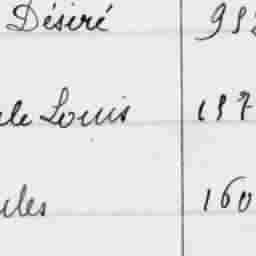 Désiré 952
le Louis 157
ules 160